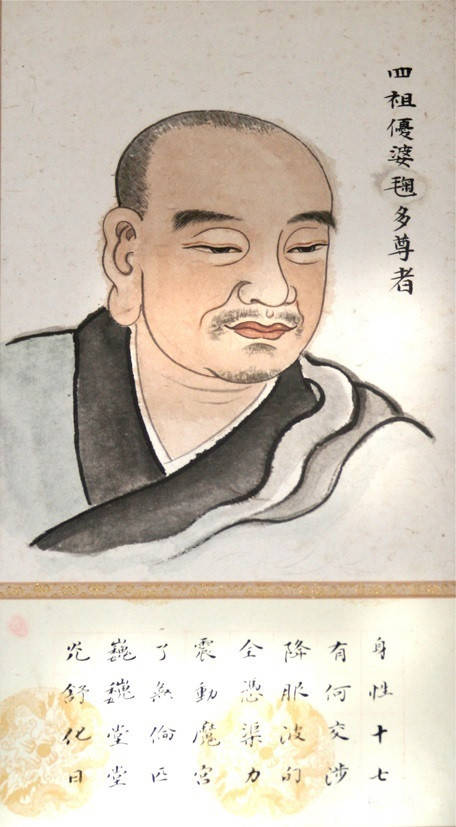 四祖優婆毱多尊者
身性十七
有何交涉
降服波旬
全憑渠力
震動魔宮
了無倫匹
巍巍堂堂
光舒化日